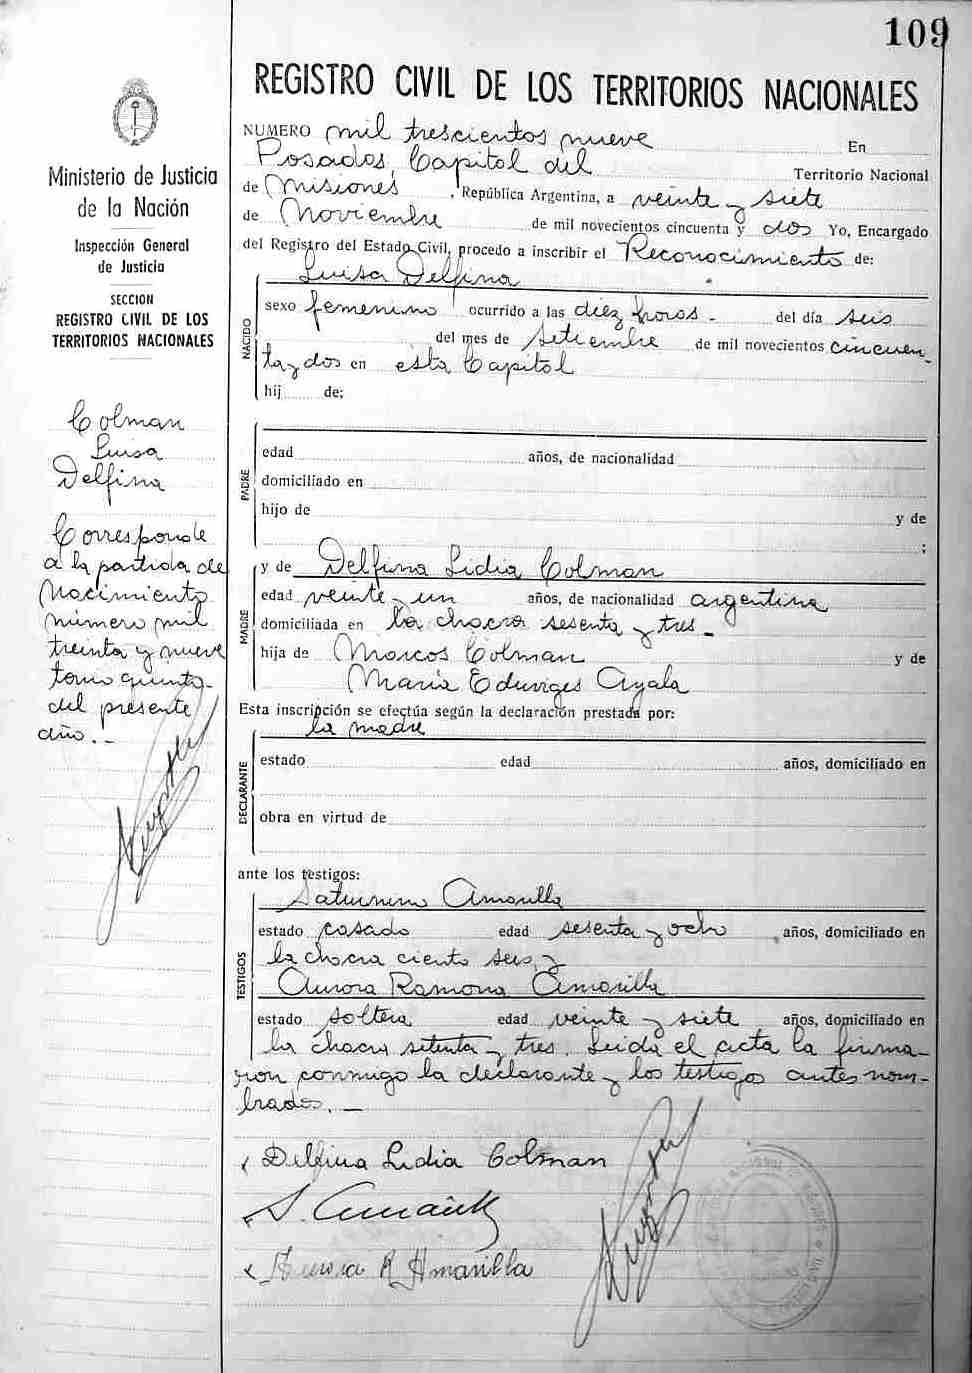 109
REGISTRO CIVIL DE LOS TERRITORIOS NACIONALES
Ministerio de Justicia
de la Nación
Inspección General
de Justicia
SECCION
REGISTRO CIVIL DE LOS
TERRITORIOS NACIONALES
Colman
Luisa
Delfina
Corresponde
a la partida de
Nacimiento
número mil
treinta y nueve
tomo quinto
del presente
año.-
NUMERO mil trescientos nueve En
Posadas, Capital del Territorio Nacional
de Misiones, República Argentina, a veinte y siete
de Noviembre de mil novecientos cincuenta y dos Yo, Encargado
del Registro del Estado Civil, procedo a inscribir el Reconocimiento de:
Luisa Delfina
NACIDO
sexo femenino ocurrido a las diez horas - del día seis
del mes de Setiembre de mil novecientos cincuen-
ta y dos en esta Capital
hij de:
PADRE
edad años, de nacionalidad
domiciliado en
hijo de y de
;
MADRE
y de Delfina Lidia Colman
edad veinte y un años, de nacionalidad argentina
domiciliada en la chacra sesenta y tres -
hija de Marcos Colman y de
María Eduviges Ayala
Esta inscripción se efectúa según la declaración prestada por:
la madre
DECLARANTE
estado edad años, domiciliado en
obra en virtud de
ante los testigos:
TESTIGOS
Saturnino Amarilla
estado casado edad sesenta y ocho años, domiciliado en
la chacra ciento seis, y
Aurora Ramona Amarilla
estado soltera edad veinte y siete años, domiciliado en
la chacra setenta y tres. Leida el acta la firma-
ron conmigo la declarante y los testigos antes nom-
brados. -
Delfina Lidia Colman
S. Amarilla
Aurora R Amarilla